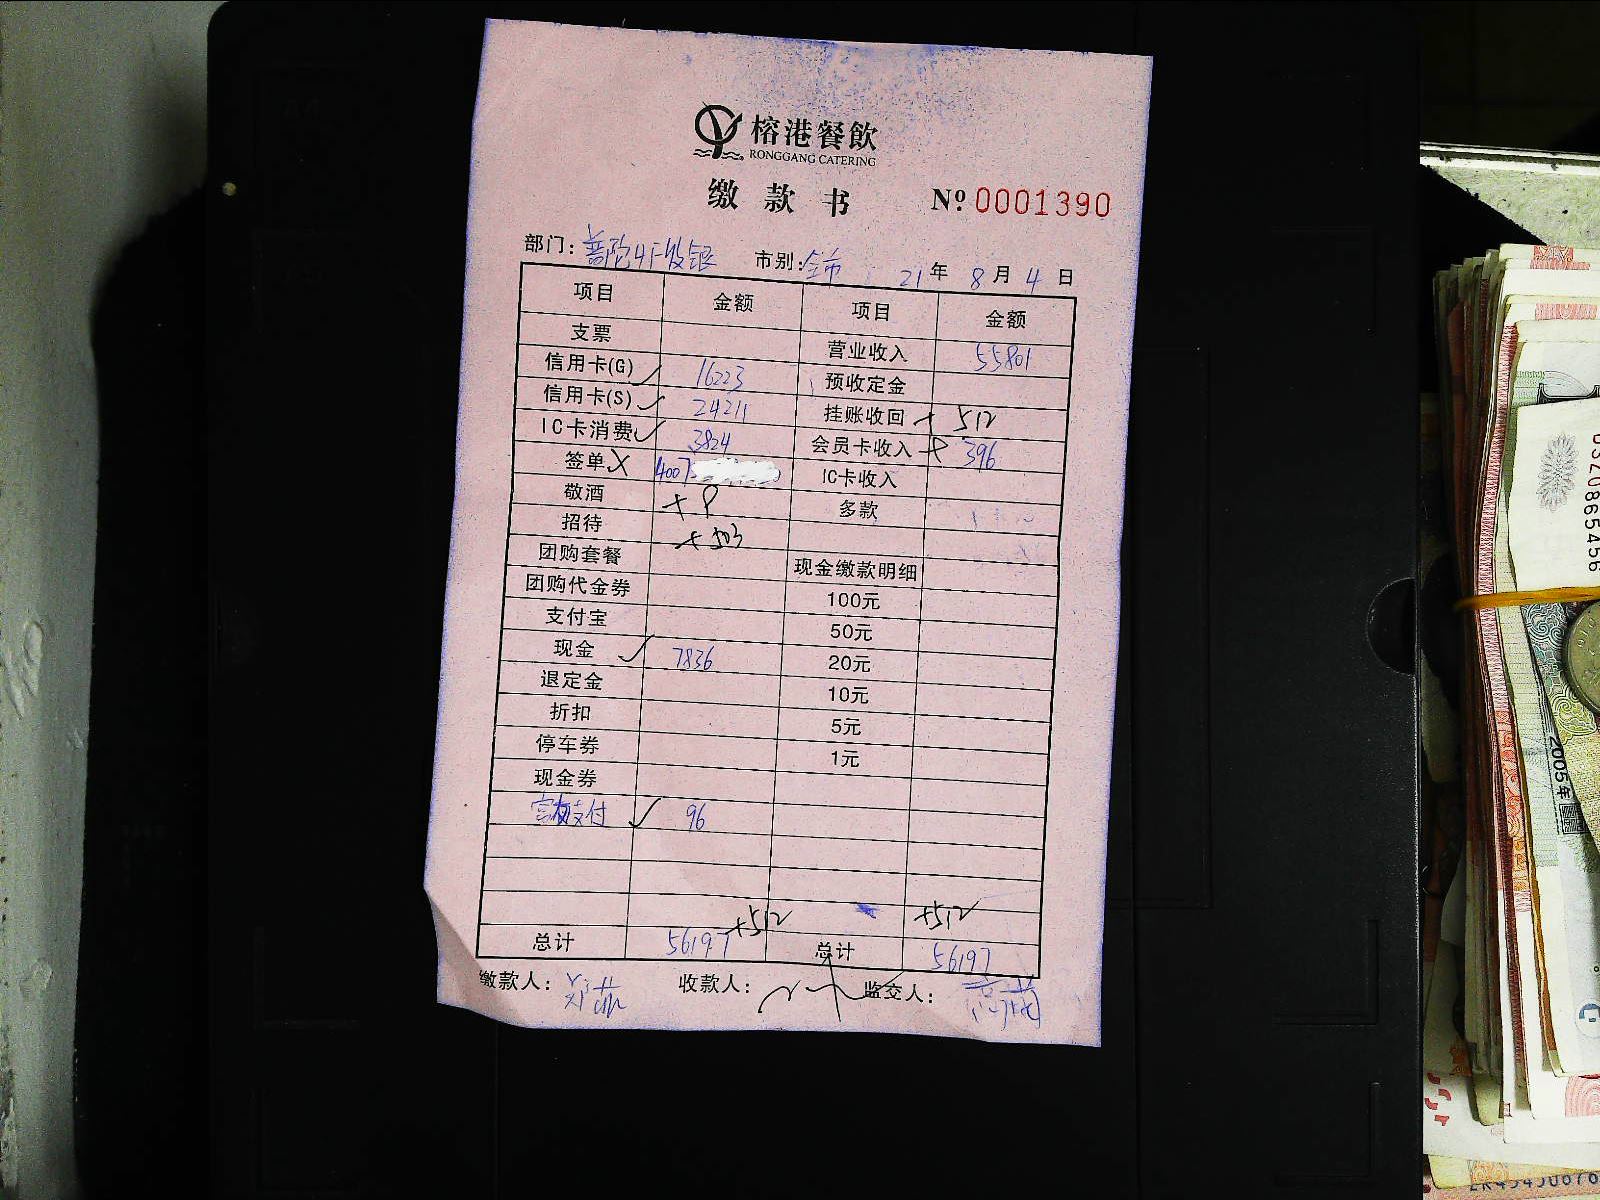 榕港餐飲
RONGGANG CATERING
缴款书 Nº 0001390
部门: 普陀4F收银 市别: 全市 21年 8月 4日
项目 金额 项目 金额
支票 营业收入 55801
信用卡(G) ✓ 16223 预收定金
信用卡(S) ✓ 24211 挂账收回 + 512
IC卡消费 ✓ 3824 会员卡收入 + 396
签单 X 4007 IC卡收入
敬酒 + 9 多款
招待 + 503
团购套餐 现金缴款明细
团购代金券 100元
支付宝 50元
现金 ✓ 7836 20元
退定金 10元
折扣 5元
停车券 1元
现金券
支付 ✓ 96
+512 +512
总计 56197 总计 56197
缴款人: 收款人: 监交人:
2005年